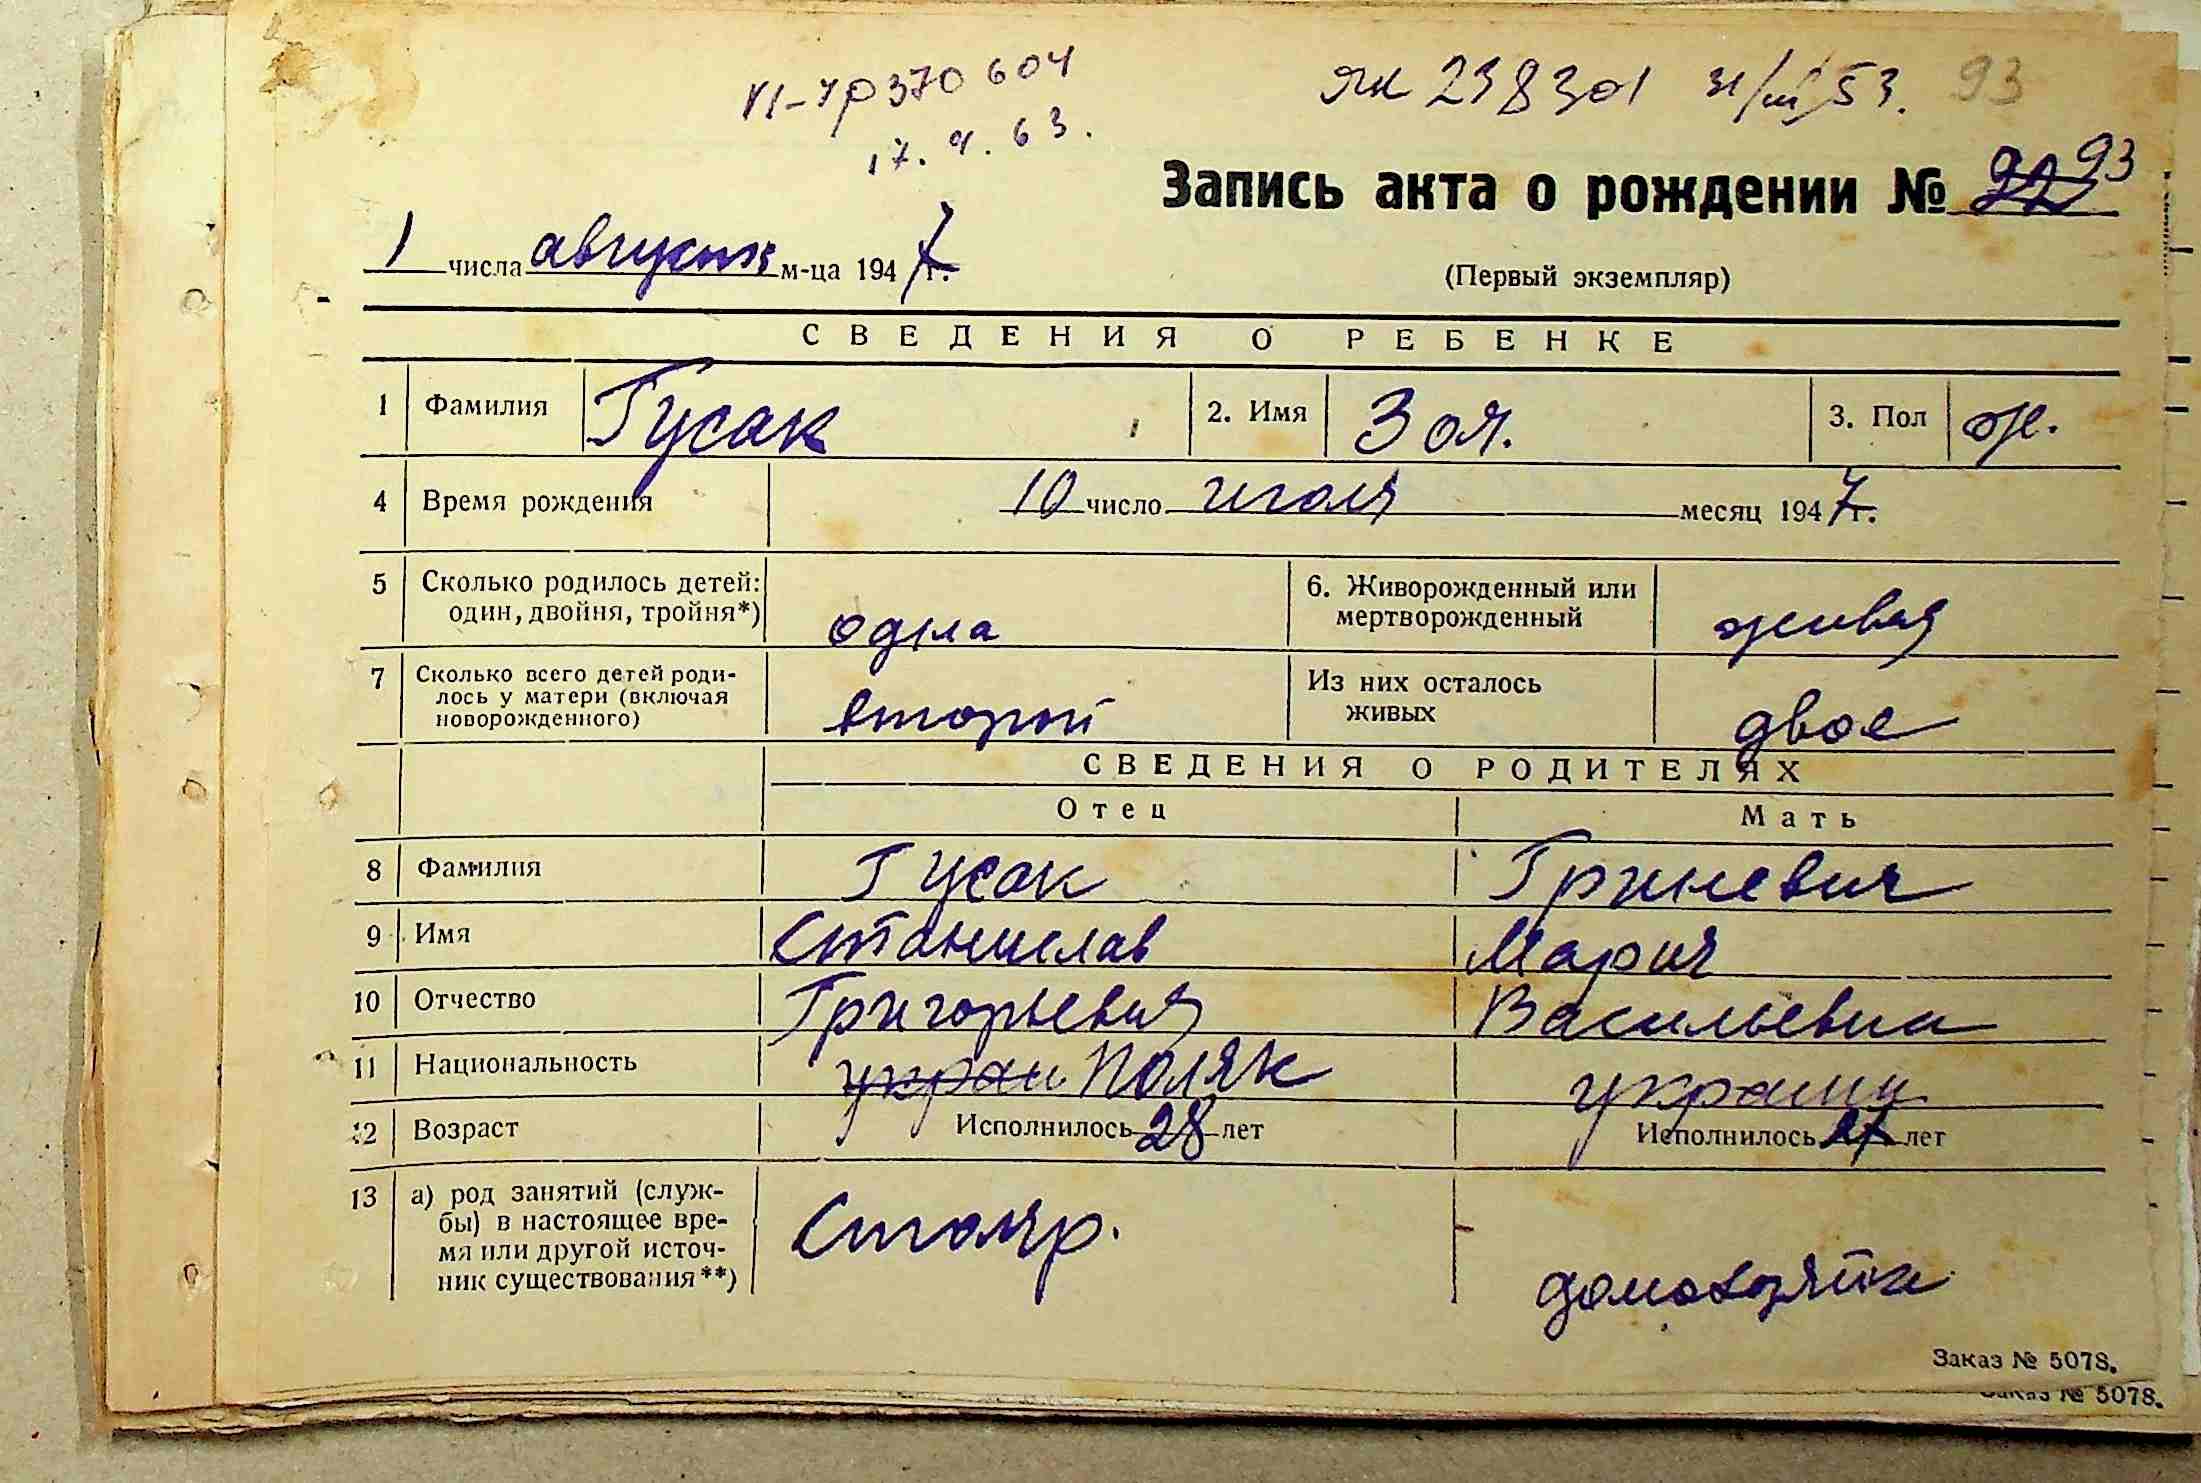 VI-УР 370604
17.9.63.
ЯК 238301 31/III 53. 93
Запись акта о рождении № 93
1 числа августа м-ца 1947 г.
(Первый экземпляр)
СВЕДЕНИЯ О РЕБЕНКЕ
1 Фамилия Гусак 2. Имя Зоя. 3. Пол ж.
4 Время рождения 10 число июля месяц 1947 г.
5 Сколько родилось детей: один, двойня, тройня*) одна 6. Живорожденный или мертворожденный живая
7 Сколько всего детей родилось у матери (включая новорожденного) второй Из них осталось живых двое
СВЕДЕНИЯ О РОДИТЕЛЯХ
Отец Мать
8 Фамилия Гусак Гриневич
9 Имя Станислав Мария
10 Отчество Григорьевич Васильевна
11 Национальность украи Поляк украин
12 Возраст Исполнилось 28 лет Исполнилось 27 лет
13 а) род занятий (службы) в настоящее время или другой источник существования**) Столяр. домохозяйка
Заказ № 5078.
Заказ № 5078.